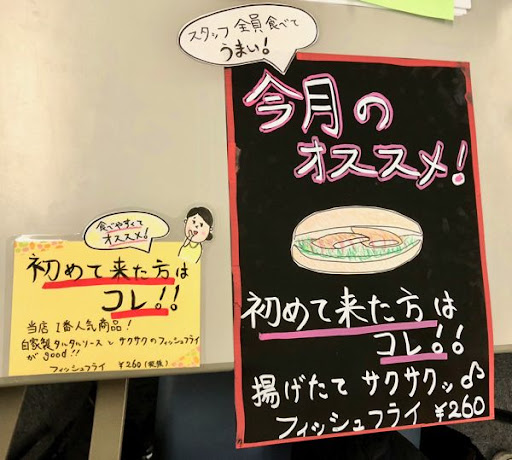 スタッフ全員食べて
うまい!
今月の
オススメ!
初めて来た方は
コレ!!
揚げたて サクサクッ♪
フィッシュフライ ¥260
食べやすくて
オススメ!
初めて来た方は
コレ!!
当店 1番人気商品!
自家製タルタルソースと サクサクのフィッシュフライ
が good!!
フィッシュフライ ¥260(税抜)